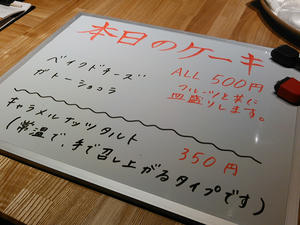 本日のケーキ
ベイクドチーズ
ガトーショコラ
ALL 500円
フルーツと共に
皿盛りします。
キャラメルナッツタルト
350円
(常温で、手で召し上がるタイプです)